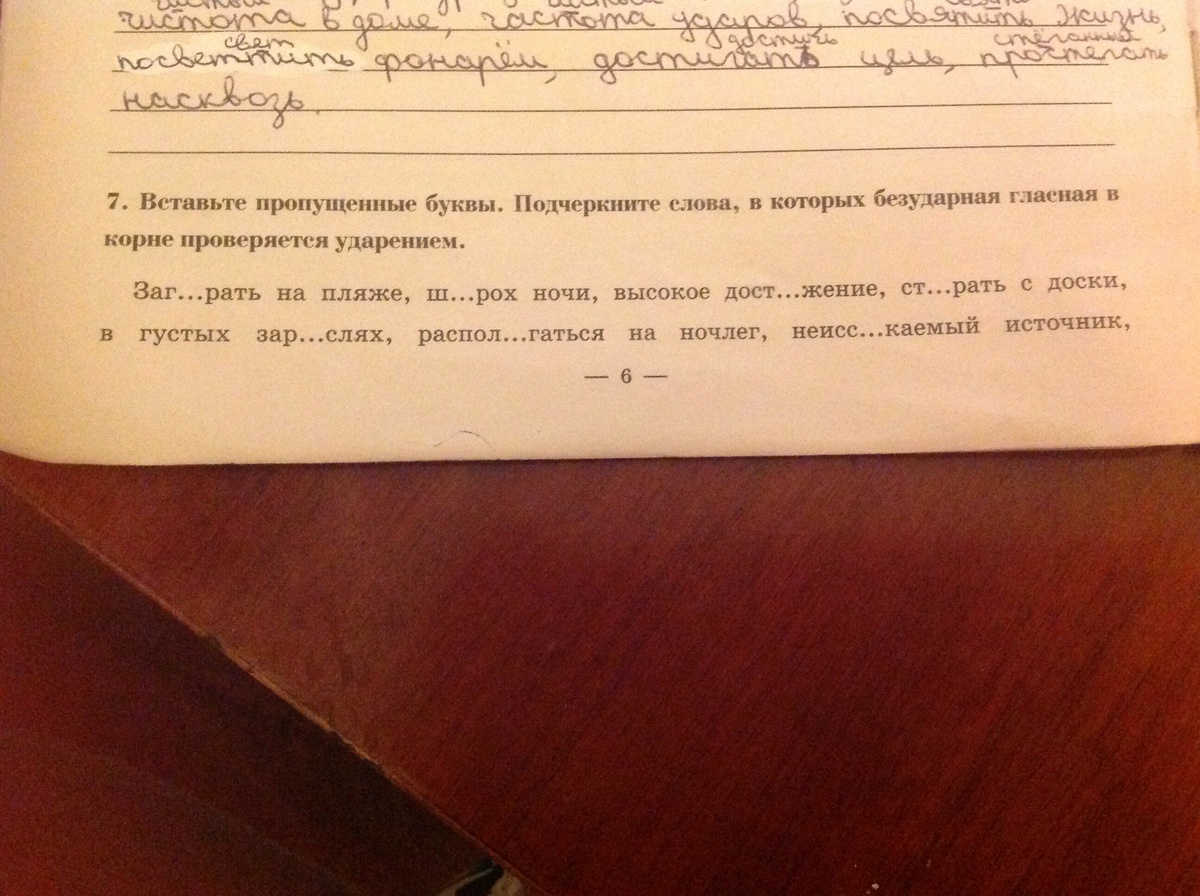 чистота в доме, частота ударов, посвятить жизнь,
свет достичь стёганный
посветтить фонарём, достигать цель, простегать
насквозь.
7. Вставьте пропущенные буквы. Подчеркните слова, в которых безударная гласная в
корне проверяется ударением.
Заг...рать на пляже, ш...рох ночи, высокое дост...жение, ст...рать с доски,
в густых зар...слях, распол...гаться на ночлег, неисс...каемый источник,
— 6 —